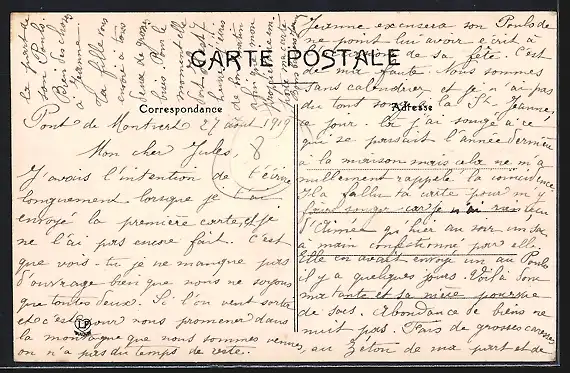 CARTE POSTALE
Correspondance
Adresse
Pont de Montvert 27 août 1919
Mon cher Jules,
J'avais l'intention de t'écrire
longuement lorsque je t'ai
envoyé la première carte et je
ne l'ai pas encore fait. C'est
que vois-tu je ne manque pas
d'ouvrage bien que nous ne soyons
que toutes deux. Si l'on veut sortir
et c'est pour nous promener dans
la montagne que nous sommes venues,
on n'a pas du temps de reste.
Jeanne excusera son Poulo de
ne point lui avoir écrit à
l'occasion de sa fête. C'est
de ma faute. Nous sommes
sans calendrier et je n'ai pas
du tout songé à la St Jeanne,
ce jour là j'ai songé à ce
qui se passait l'année dernière
à la maison mais cela ne m'a
nullement rappelé la coïncidence
Il a fallu ta carte pour m'y
faire songer car je n'ai rien reçu
d'Aimée qu'hier au soir un sac
à main confectionné par elle.
Elle en avait envoyé un au Poulo
il y a quelques jours. Voilà donc
ma tante et sa nièce pourvue
de sacs. Abondance de biens ne
nuit pas. Fais de grosses caresses
au Zéton de ma part et de
la part de
son Poulo.
Bien des choses
à Jeanne.
La fille vous
envoie à tous
deux de gros